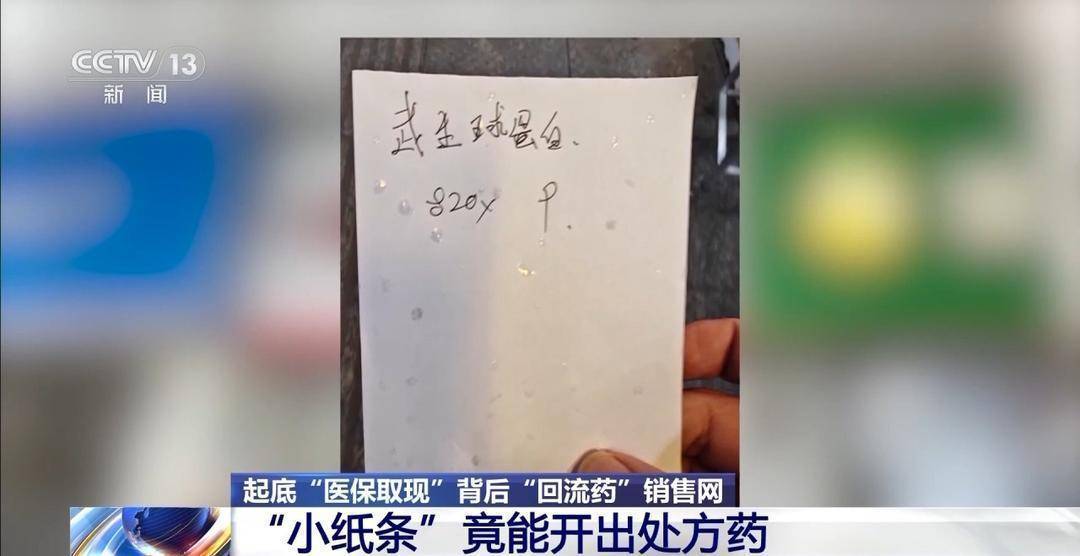 CCTV 13
新闻
武生球蛋白.
820x 9.
起底“医保取现”背后“回流药”销售网
“小纸条”竟能开出处方药